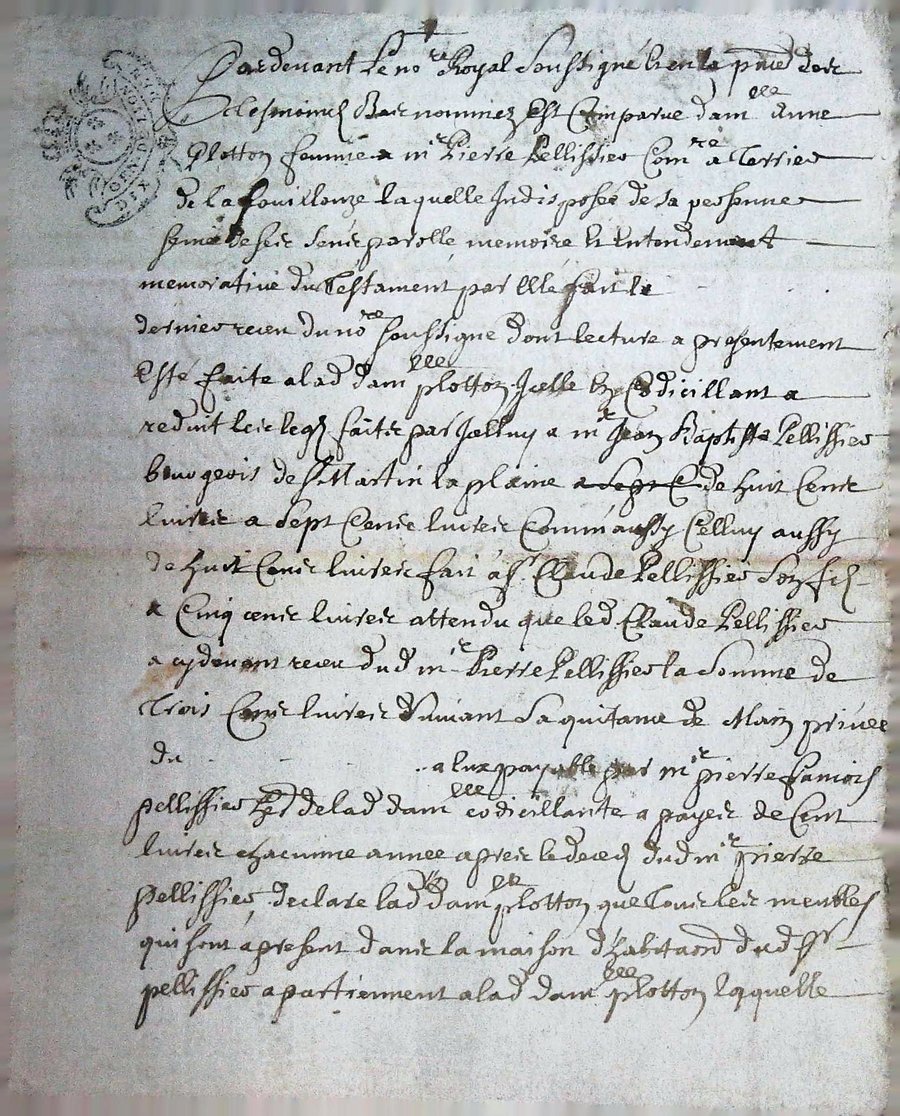 Pardevant Le no.re Royal Soussigné & en la pnce des
tesmoins Bas nommez Est Comparue dam.lle Anne
Plotton femme a m.r Pierre Pellissier Com.re a Terrier
de la fouillouze laquelle Indisposée de sa personne
ferme de ses sens parolle memoire & Entendement
memorative du Testament par Elle fait le
dernier receu du no.re soussigne dont lecture a presentement
Esté faite a lad dam.lle plotton Icelle En Codicillant a
reduit les legs faits par Icelluy a m.r Jean Baptiste Pellissier
bourgeois de St Martin la plaine a sept C de huit Cens
livres a sept Cens livres Comm'aussy Celluy aussy
de huit Cens livres fait a sr. Claude Pellissier son fils
a Cinq cens livres attendu que led Claude Pellissier
a cydevant receu dud m.r Pierre Pellissier la somme de
Trois Cens livres suivant sa quitance de Main privée
du a lux payable par m.r pierre francois
pellissier her de lad dam.lle codicillante a payes de Cent
livres chacunne annee apres le deces dud m.r pierre
pellissier, declare lad dam.lle plotton que Tous les meubles
qui sont a present dans la maison d'habitaon dud sr
pellissier apartiennent a lad dam.lle plotton laquelle